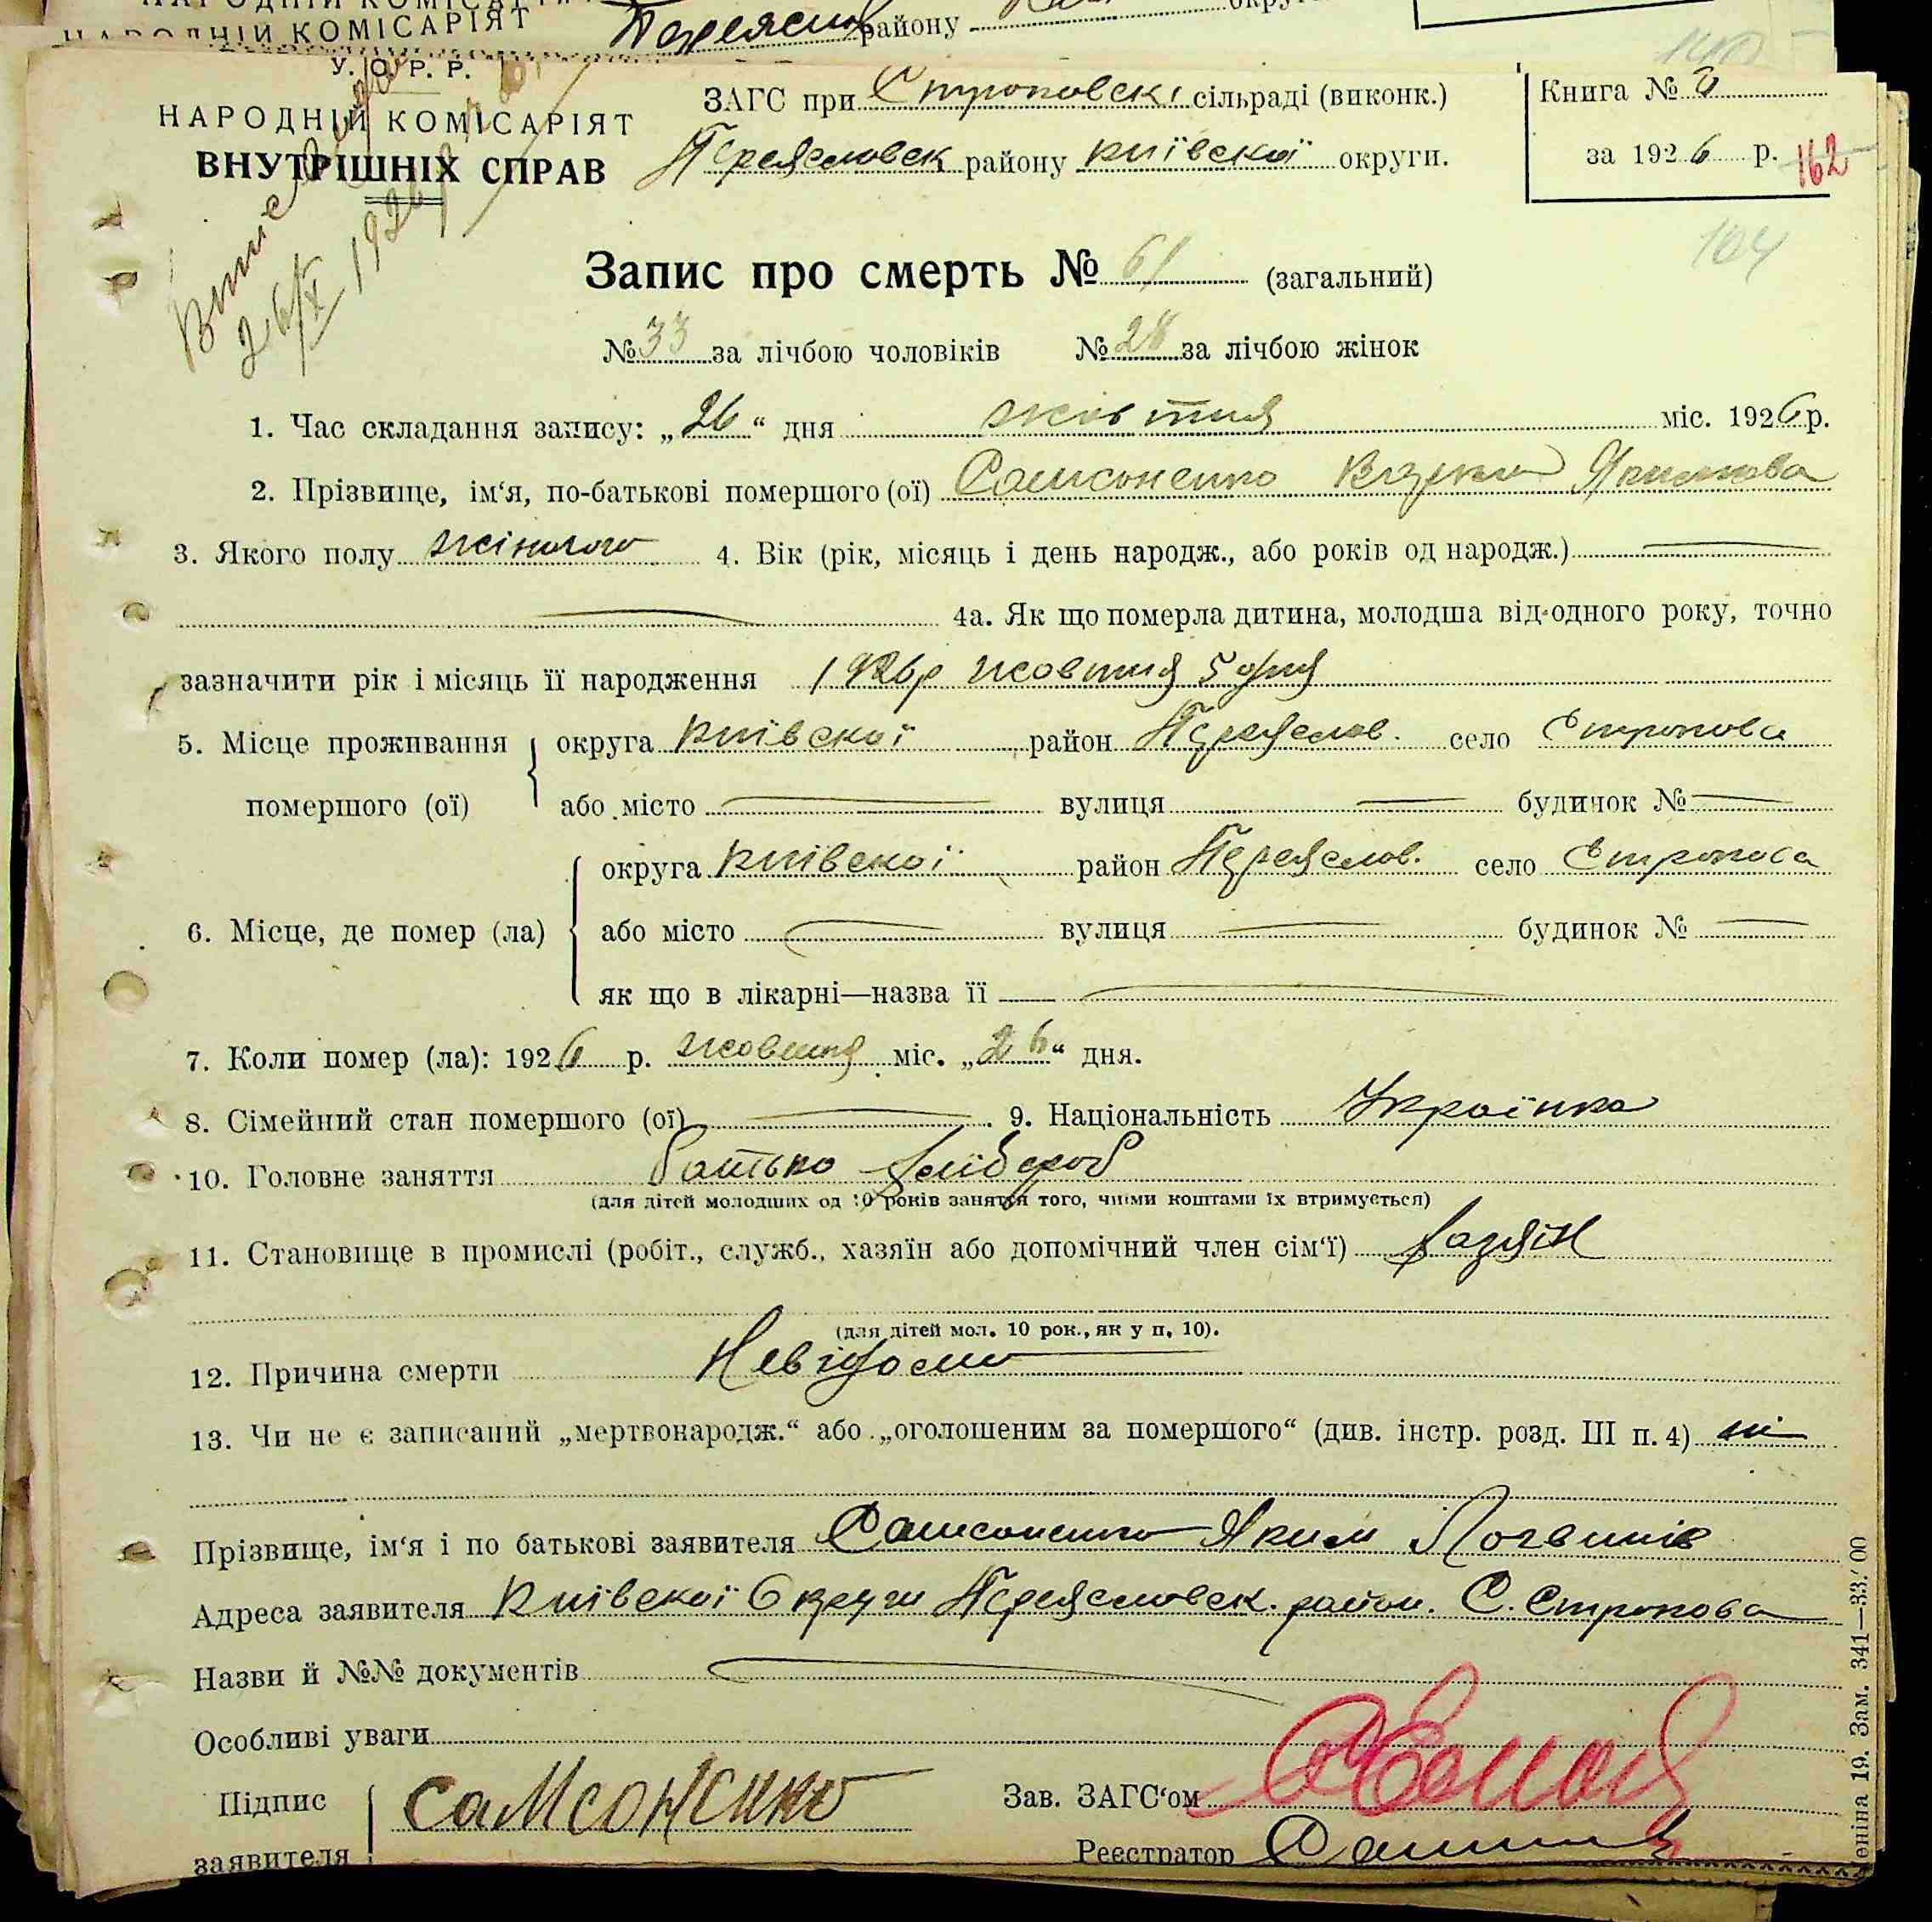 НАРОДНІЙ КОМІСАРІЯТ
району
У. С. Р. Р.
НАРОДНІЙ КОМІСАРІЯТ
ВНУТРІШНІХ СПРАВ
ЗАГС при Строковскі сільраді (виконк.)
Переясловск району київської округи.
Книга №
за 1926 р. 162
104
26/X 1926
Запис про смерть № 61 (загальний)
№ 33 за лічбою чоловіків № 28 за лічбою жінок
1. Час складання запису: „26“ дня жовтня міс. 1926 р.
2. Прізвище, ім‘я, по-батькові помершого (ої) Самсоненко Якимова
3. Якого полу жіночого 4. Вік (рік, місяць і день народж., або років од народж.) —
— 4а. Як що померла дитина, молодша від одного року, точно
зазначити рік і місяць її народження 1926р жовтня 5 дня
5. Місце проживання округа Київської район Переяслов. село Строкова
помершого (ої) або місто — вулиця — будинок № —
округа Київської район Переяслов. село Строкова
6. Місце, де помер (ла) або місто — вулиця — будинок № —
як що в лікарні—назва її —
7. Коли помер (ла): 1926 р. жовтня міс. „26“ дня.
8. Сімейний стан помершого (ої) — 9. Національність Українка
10. Головне заняття батько хлібороб
(для дітей молодших од 10 років заняття того, чиїми коштами їх втримується)
11. Становище в промислі (робіт., служб., хазяїн або допомічний член сім‘ї) хазяін
(для дітей мол. 10 рок., як у п. 10).
12. Причина смерти Невідомо
13. Чи не є записаний „мертвонародж.“ або „оголошеним за помершого“ (див. інстр. розд. III п. 4) ні
Прізвище, ім‘я і по батькові заявителя Самсоненко Яким Логвинів
Адреса заявителя Київської Округи Переясловск. район. С. Строкова
Назви й №№ документів —
Особливі уваги
Підпис заявителя Самсоненко
Зав. ЗАГС‘ом
Реєстратор
19. Зам. 341—33.